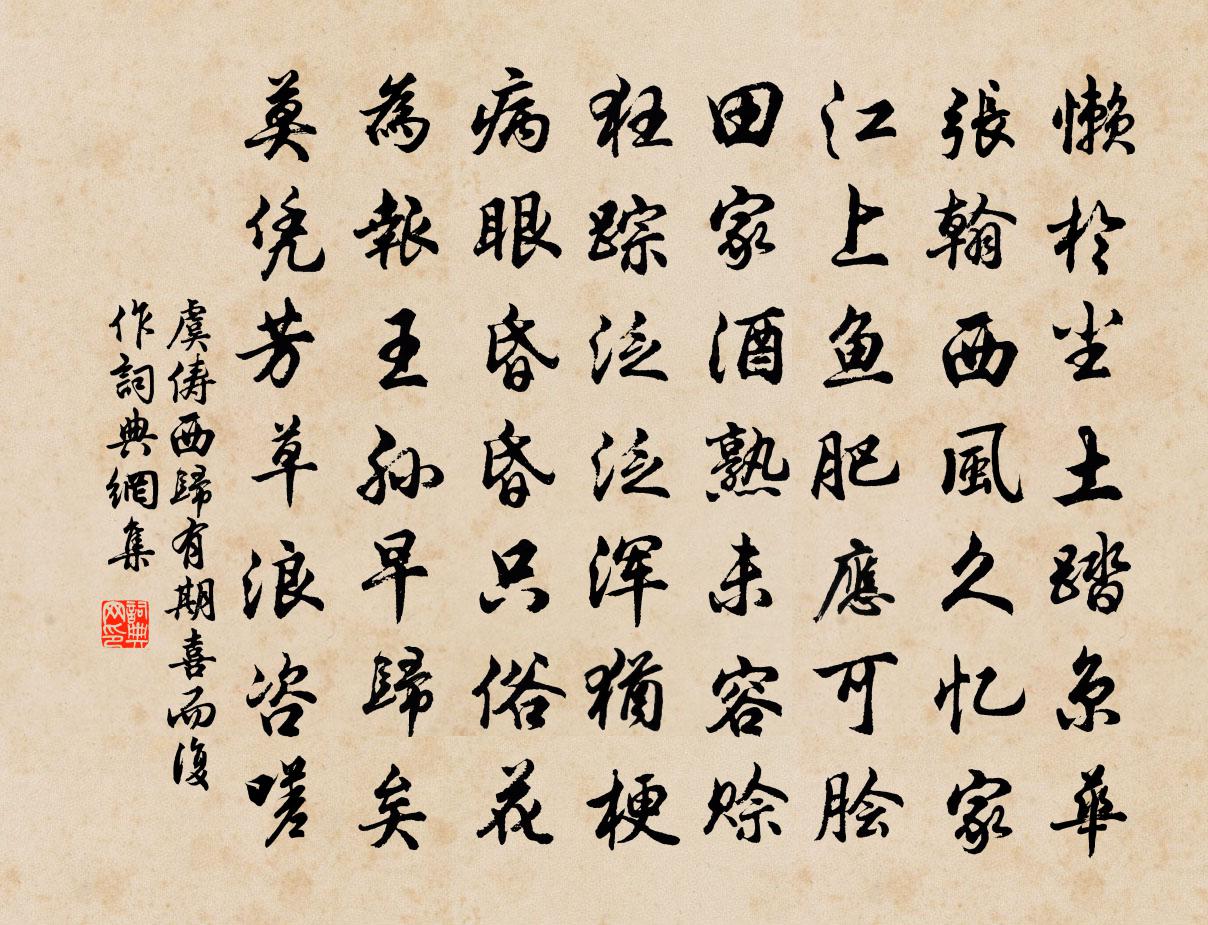 懒於尘土踏京華
張翰西風久忆家
江上鱼肥應可脍
田家酒熟未容赊
狂踪泛泛浑猶梗
病眼昏昏只俗花
為報王孙早歸矣
莫凭芳草浪咨嗟
虞俦西歸有期喜而復
作詞典網集
詞典网印